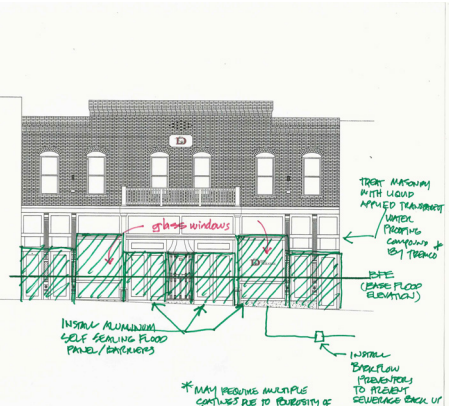 D
glass windows
TREAT MASONRY
WITH LIQUID
APPLIED TRANSPARENT
WATER
PROOFING
COMPOUND *
BY TREMCO
BFE
(BASE FLOOD
ELEVATION)
INSTALL ALUMINUM
SELF SEALING FLOOD
PANEL/BARRIERS
INSTALL
BACKFLOW
PREVENTERS
TO PREVENT
SEWERAGE BACK UP
* MAY REQUIRE MULTIPLE
COATINGS DUE TO POUROSITY OF